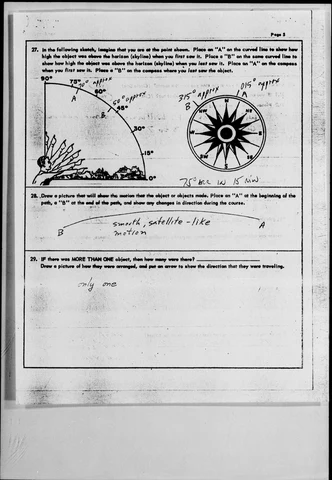 Page 2
27. In the following sketch, imagine that you are at the point shown. Place an "A" on the curved line to show how
high the object was above the horizon (skyline) when you first saw it. Place a "B" on the same curved line to
show how high the object was above the horizon (skyline) when you last saw it. Place an "A" on the compass
when you first saw it. Place a "B" on the compass where you last saw the object.
90°
75°
70° approx
A
60°
50° approx
B
45°
30°
15°
0°
315° approx
B
015° approx
A
N
NE
E
SE
S
SW
W
NW
75° arc in 15 min
28. Draw a picture that will show the motion that the object or objects made. Place an "A" at the beginning of the
path, a "B" at the end of the path, and show any changes in direction during the course.
B
smooth, satellite-like
motion
A
29. IF there was MORE THAN ONE object, then how many were there?
Draw a picture of how they were arranged, and put an arrow to show the direction that they were traveling.
only one